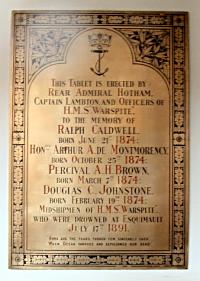 This Tablet is erected by
Rear Admiral Hotham,
Captain Lambton, and Officers of
H.M.S. "Warspite",
to the memory of
Ralph Caldwell,
born June 21st 1874:
Honble Arthur A. de Montmorency,
born October 25th 1874:
Percival A.H. Brown,
born March 7th 1874:
Douglas C. Johnstone,
born February 19th 1874:
Midshipmen of H.M.S. "Warspite",
who were drowned at Esquimault
July 17th 1891.